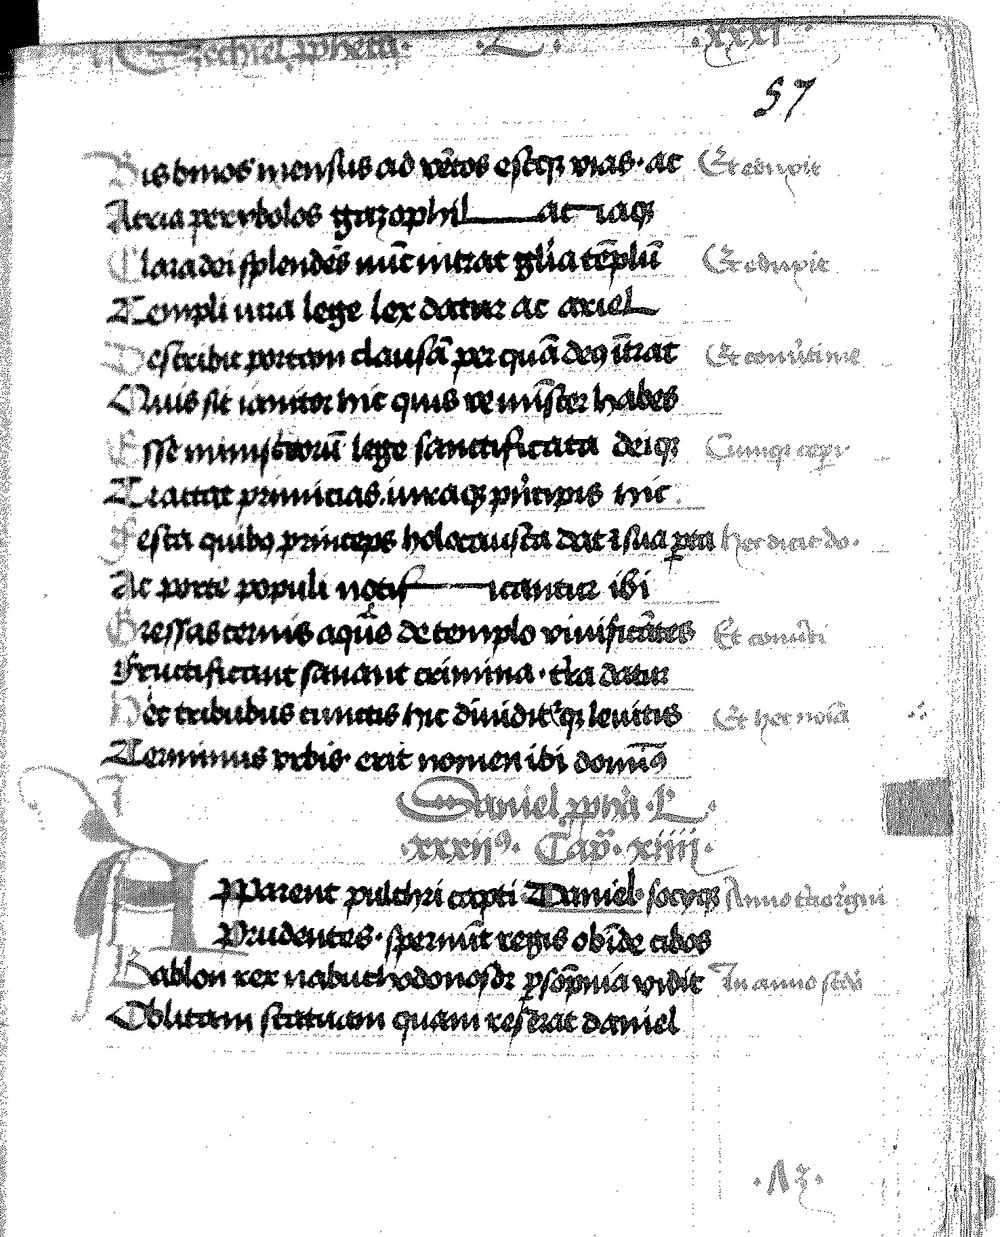 Ezechiel ppheta · L · xxxi
57
Bis binos mensus ad vētos estq3 vias · ac Et eduxit
Atria perybolos gazophil ac iaq3
Clara dei splendēs nūc intrat glīa tēplū Et eduxit
Templi iura lege lex datur ac ariel
Describit portam clausā per quā deꝰ ītrat Et conūtit me
Quis sit ianitor hic quis ve minīster habes
Esse ministrorū lege sanctificata deiq3 Cumq3 ceper
Tractat primicias iuraq3 prīcipis hic
Festa quibꝰ princeps holocausta dat ī sua porta hec dicit do ·
Ac porte populi notif icantur ibi
Gressas ternis aquīs de templo viuificātes Et conūti
Fructificant sanant crimina · tr̄a datur
Hec tribubus cunctis hic diuiditq3 leuitis Et hec noīa
Terminus vrbis · erit nomen ibi domīꝰ
Daniel ppha · L ·
· xxxiiꝰ · Cap̄ · xiiii ·
APparent pulchri capti Daniel socijq3 Anno tercio regni
Prudentes · spernūt regis obīde cibos
Bablon rex nabuchodonosor p sōpnia vidit In anno scdo
Oblitam statuam quam reserat daniel